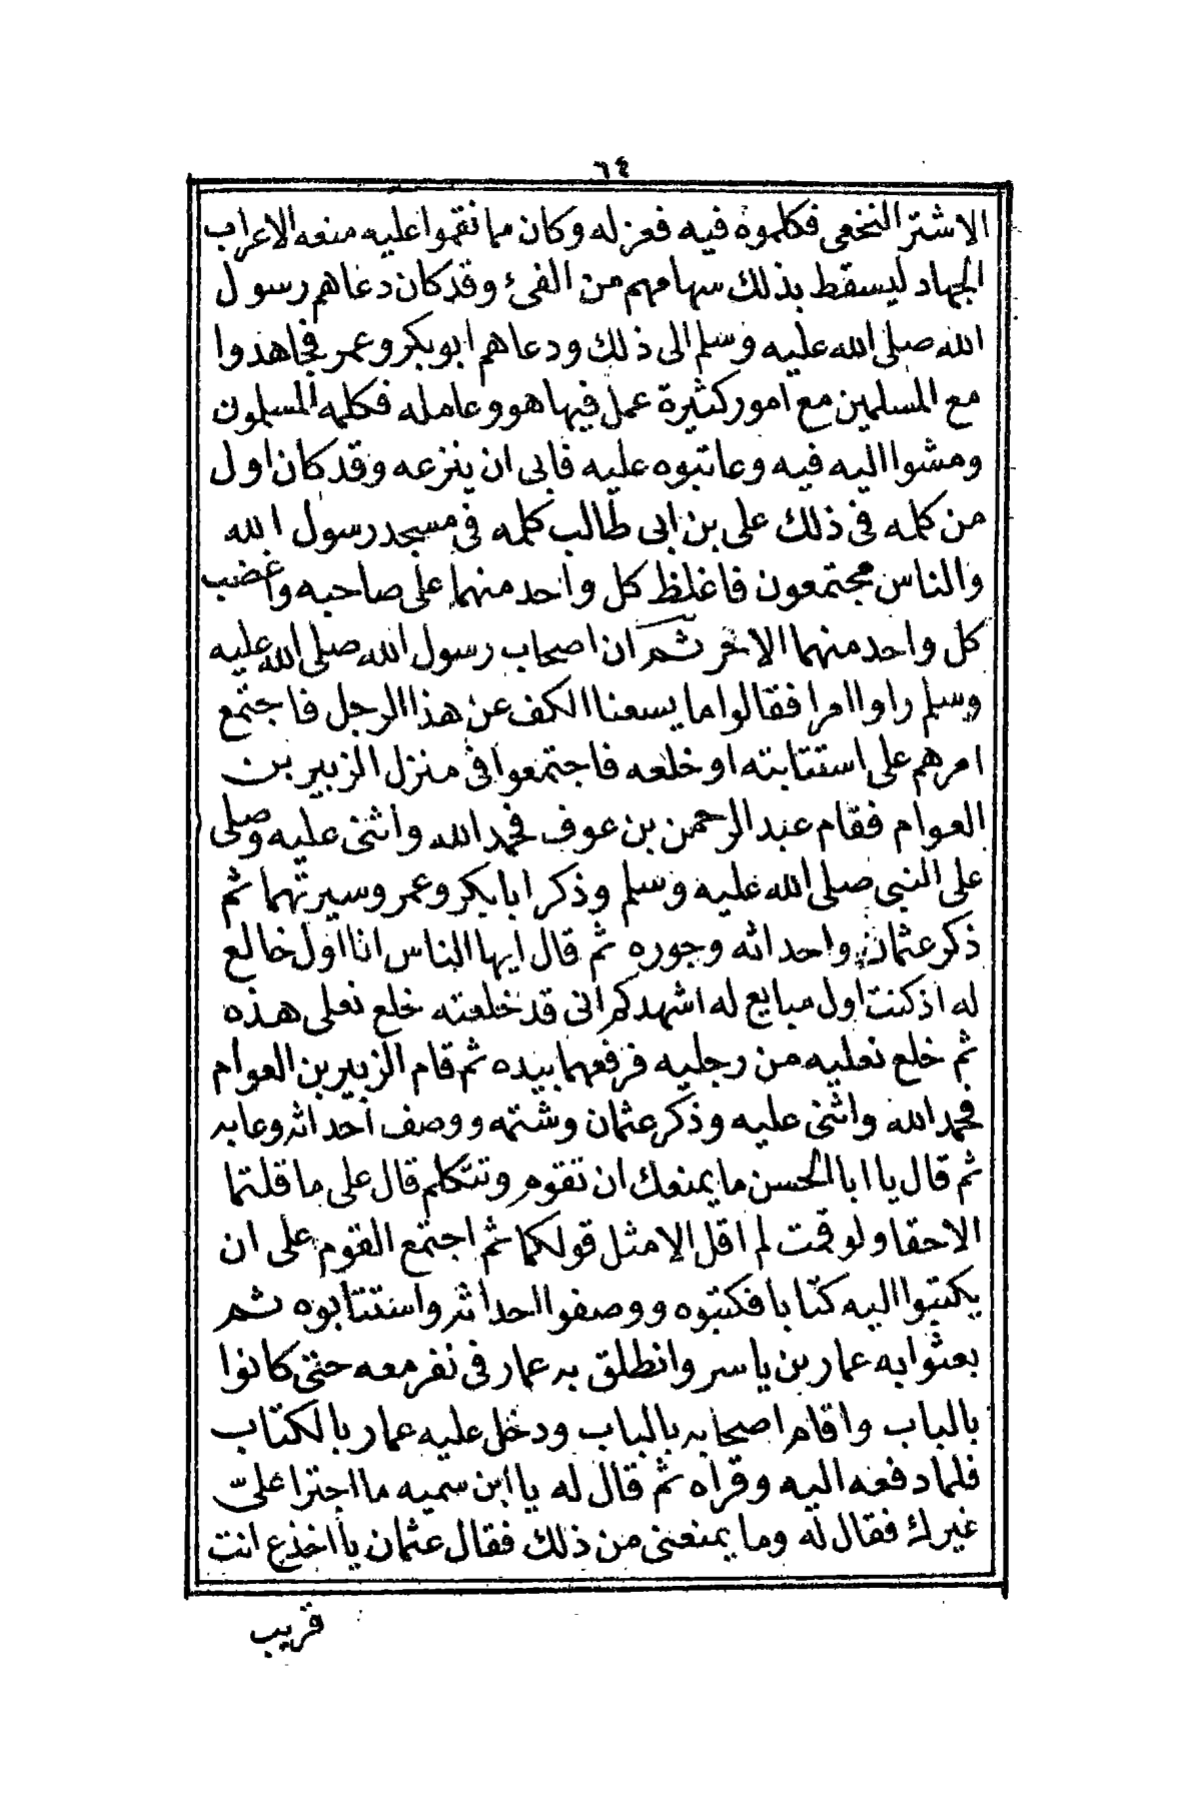 ٦٤
الاشتر النخعى فكلموه فيه فعزله وكان مما نقموا عليه منعه الاعراب
الجهاد ليسقط بذلك سهامهم من الفئ وقد كان دعاهم رسول
الله صلى الله عليه وسلم الى ذلك ودعاهم ابوبكر وعمر فجاهدوا
مع المسلمين مع امور كثيرة عمل فيها هو وعامله فكلمه المسلمون
ومشوا اليه فيه وعاتبوه عليه فابى ان ينزعه وقد كان اول
من كلمه فى ذلك على بن ابى طالب كلمه فى مسجد رسول الله
والناس مجتمعون فاغلظ كل واحد منهما على صاحبه واغضب
كل واحد منهما الاخر ثم ان اصحاب رسول الله صلى الله عليه
وسلم راوا امرا فقالوا ما يسعنا الكف عن هذا الرجل فاجتمع
امرهم على استتابته او خلعه فاجتمعوا فى منزل الزبير بن
العوام فقام عبد الرحمن بن عوف فحمد الله واثنى عليه وصلى
على النبى صلى الله عليه وسلم وذكر ابابكر وعمر وسيرتهما ثم
ذكر عثمان واحداثه وجوره ثم قال ايها الناس انا اول خالع
له اذ كنت اول مبايع له اشهدكم انى قد خلعته خلع نعلى هذه
ثم خلع نعليه من رجليه فرفعهما بيده ثم قام الزبير بن العوام
فحمد الله واثنى عليه وذكر عثمان وشتمه ووصف احداثه وعابه
ثم قال يا ابا الحسن ما يمنعك ان تقوم وتتكلم قال على ما قلتما
الاحقا ولو قمت لم اقل الا مثل قولكما ثم اجتمع القوم على ان
يكتبوا اليه كتابا فكتبوه ووصفوا احداثه واستتابوه ثم
بعثوا به عمار بن ياسر وانطلق به عمار فى نفر معه حتى كانوا
بالباب واقام اصحابه بالباب ودخل عليه عمار بالكتاب
فلما دفعه اليه وقراه ثم قال له يا ابن سميه ما اجترا علىّ
غيرك فقال له وما يمنعنى من ذلك فقال عثمان يا اخذع انت
قريب